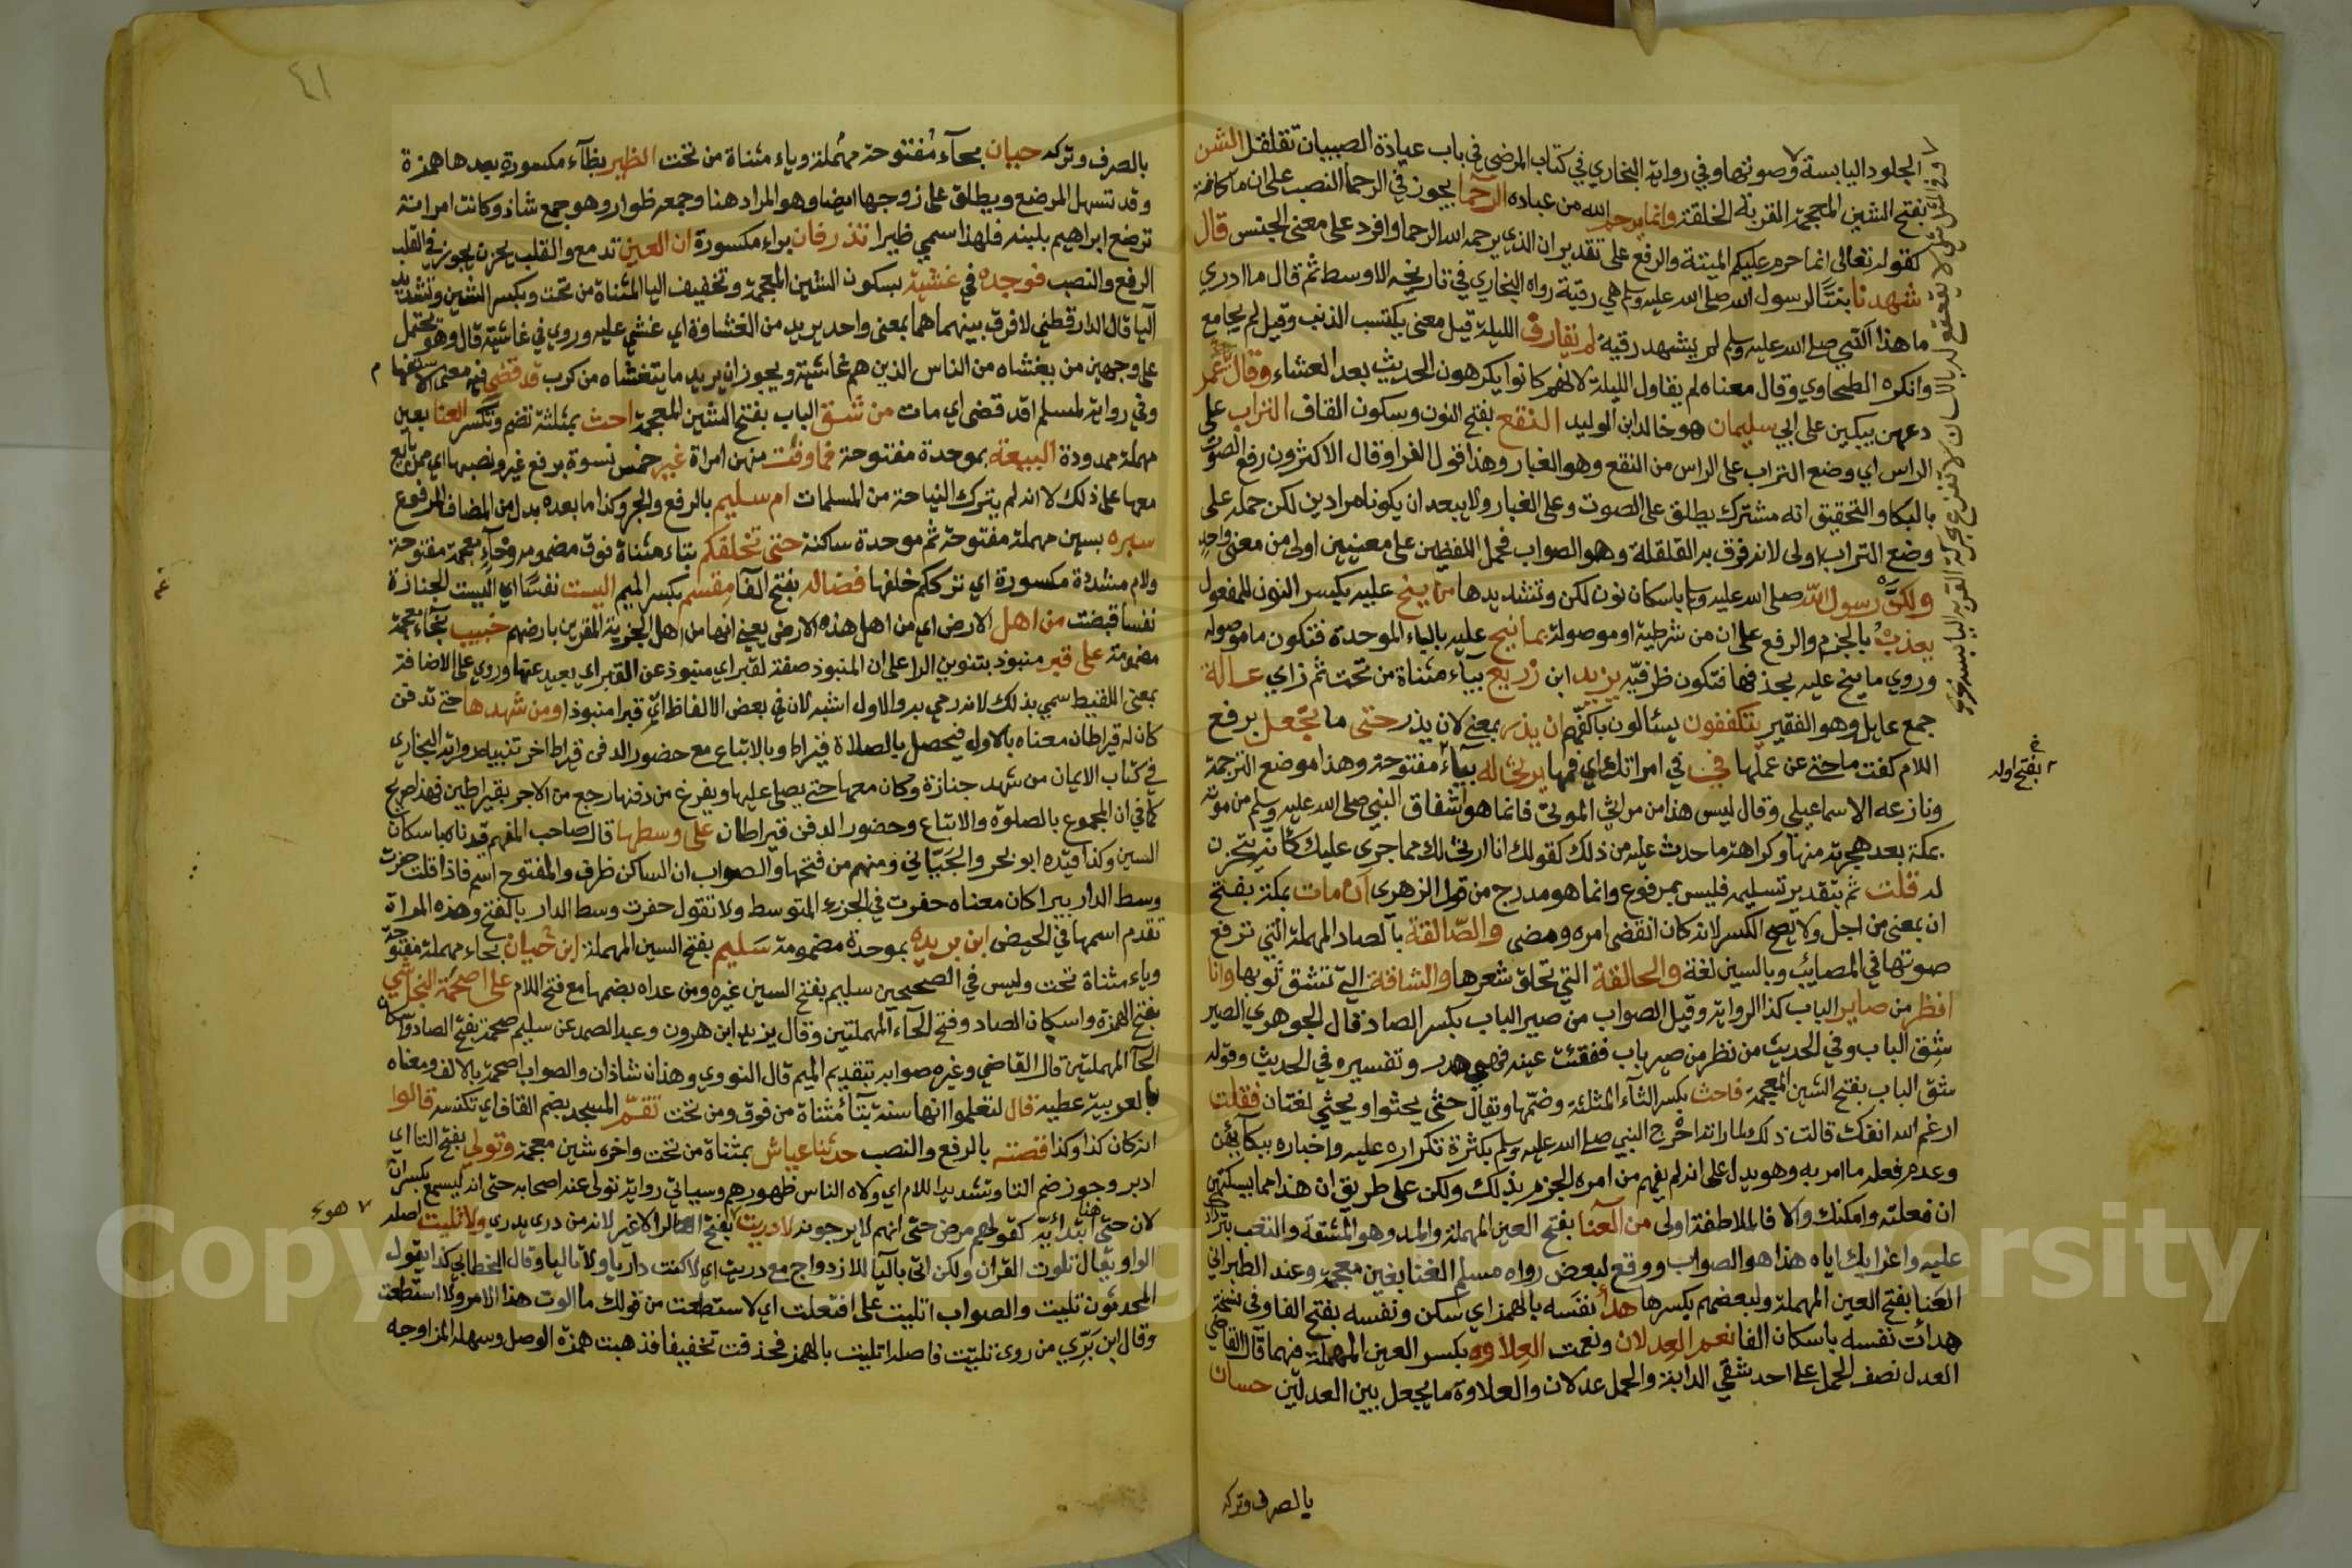 الجلود اليابسة وصوتها وفي رواية البخاري في كتاب المرضى في باب عيادة الصبيان تقلقل الشن
بفتح الشين المعجمة القربة الخلقة وانما يرحم الله من عباده الرحما يجوز في الرحما النصب على ان ما كافة
كقوله تعالى انما حرم عليكم الميتة والرفع على تقدير ان الذي يرحمه الله الرحما وافرد على معنى الجنس قال
شهدنا بنتا لرسول الله صلى الله عليه وسلم هي رقية رواه البخاري في تاريخه الاوسط ثم قال ما ادري
ما هذا النبي صلى الله عليه وسلم لم يشهد رقية لم يقارف الليلة قيل معنى يكتسب الذنب وقيل لم يجامع
وانكره الطحاوي وقال معناه لم يقاول الليلة لانهم كانوا يكرهون الحديث بعد العشاء وقال عمر
دعهن يبكين على ابي سليمان هو خالد ابن الوليد النقع بفتح النون وسكون القاف التراب على
الراس اي وضع التراب على الراس من النقع وهو الغبار وهذا قول الفرا وقال الاكثرون رفع الصوت
بالبكا والتحقيق انه مشترك يطلق على الصوت وعلى الغبار ولا يبعد ان يكونا مرادين لكن حمله على
وضع التراب اولى لانه قرن به القلقلة وهو الصواب فحمل اللفظين على معنيين اولى من معنى واحد
ولكن رسول الله صلى الله عليه وسلم باسكان نون لكن وتشديدها من ينح عليه بكسر النون للمفعول
يعذب بالجزم والرفع على ان من شرطية او موصولة بما نيح عليه بالباء الموحدة فتكون ما موصولة
وروي ما ينح عليه بحذفها فتكون ظرفية يزيد ابن زريع بياء مثناة من تحت ثم زاي عالة
جمع عايل وهو الفقير يتكففون يسئالون باكفهم ان يذر بمعنى لان يذر حتى ما تجعل برفع
اللام كفت ما حتى عن عملها في في امراتك اي فمها يرثى له بياء مفتوحة وهذا موضع الترجمة
ونازعه الاسماعيلي وقال ليس هذا من مراثي الموتى فانما هو اشفاق النبي صلى الله عليه وسلم من موته
بمكة بعد هجرته منها وكراهة ما حدث عليه من ذلك كقولك انا ارثى لك مما جرى عليك كانه يتحزن
له قلت ثم بتقدير تسليمه فليس بمرفوع وانما هو مدرج من قول الزهرى ان مات بمكة بفتح
ان بمعنى من اجل ولا يصح الكسر لانه كان انقضى امره ومضى والصالقة بالصاد المهملة التي ترفع
صوتها في المصايب وبالسين لغة والحالقة التي تحلق شعرها والشاقة التي تشق ثوبها وانا
انظر من صاير الباب كذا الرواية وقيل الصواب من صير الباب بكسر الصاد قال الجوهري الصير
شق الباب وفي الحديث من نظر من صير باب ففقئت عينه فهي هدر وتفسيره في الحديث وقوله
شق الباب بفتح الشين المعجمة فاحث بكسر الثاء المثلثة وضمها ويقال حثى يحثوا ويحثي لغتان فقلت
ارغم الله انفك قالت ذلك لما راته احرج النبي صلى الله عليه وسلم بكثرة تكراره عليه واخباره ببكايهن
وعدم فعله ما امر به وهو يدل على انه لم يفهم من امره الجزم بذلك ولكن على طريق ان هذا مما يسكتهن
ان فعلته وامكنك والا فالملاطفة اولى من العنا بفتح العين المهملة والمد وهو المشقة والتعب
عليه واغرايك اياه هذا هو الصواب ووقع لبعض رواه مسلم الغثا بغين معجمة وعند الطبراني
العنا بفتح العين المهملة ولبعضهم بكسرها هدأ نفسه بالهمز اي سكن ونفسه بفتح الفا وفي نسخة
هدات نفسه باسكان الفا نعم العدلان ونعمت العلاوه بكسر العين المهملة فيهما قال القاضي
العدل نصف الحمل على احد شقي الدابة والحمل عدلان والعلاوة ما يجعل بين العدلين حسان
بالصرف وتركه
بفتح اوله
٤١
بالصرف وتركه حيان بحاء مفتوحة مهملة وياء مثناة من تحت الظير بظاء مكسورة بعدها همزة
وقد تسهل المرضع ويطلق على زوجها ايضا وهو المراد هنا وجمعه ظوار وهو جمع شاذ وكانت امراته
ترضع ابراهيم بلبنه فلهذا سمي ظيرا تذرفان براء مكسورة ان العين تدمع والقلب يحزن يجوز في القلب
الرفع والنصب فوجده في غشية بسكون الشين المعجمة وتخفيف اليا المثناة من تحت وبكسر الشين وتشديد
اليا قال الدارقطني لا فرق بينهما هما بمعنى واحد يريد من الغشاوة اي غشي عليه وروي في غاشية قال وهو يحتمل
على وجهين من يغشاه من الناس الذين هم غاشية ويجوز ان يريد ما يتغشاه من كرب قد قضى فيه معنى الاستفهام
وفي رواية لمسلم اقد قضى اي مات من شق الباب بفتح الشين المعجمة احث بمثلثة تضم وتكسر العنا بعين
مهملة ممدودة البيعة بموحدة مفتوحة فما وفت منهن امراة غير خمس نسوة برفع غير ونصبها اي ممن بايع
معها على ذلك لا انه لم يترك النياحة من المسلمات ام سليم بالرفع والجر وكذا ما بعده بدل من المضاف المرفوع
سبره بسين مهملة مفتوحة ثم موحدة ساكنة حتى تخلفكم بتاء مثناة فوق مضمومه وخاء معجمة مفتوحة
ولام مشددة مكسورة اي تترككم خلفها فضاله بفتح الفا مقسم بكسر الميم اليست نفسا اي اليست الجنازة
نفسا قبضت من اهل الارض اي من اهل هذه الارض يعني انها من اهل الجزية المقرين بارضهم خبيب بخاء معجمة
مضمومة على قبر منبوذ بتنوين الرا على ان المنبوذ صفة لقبر اي منبوذ عن القبر اي بعيد عنها وروي على الاضافة
بمعنى اللقيط سمي بذلك لانه رمي به والاول اشبه لان في بعض الالفاظ اتي قبرا منبوذا ومن شهدها حتى تدفن
كان له قيراطان معناه بالاول فيحصل بالصلاة قيراط وبالاتباع مع حضور الدفن قيراط اخر تنبيه رواية البخاري
في كتاب الايمان من شهد جنازة وكان معها حتى يصلي عليها ويفرغ من دفنها رجع من الاجر بقيراطين فهذا صريح
كما في ان المجموع بالصلوة والاتباع وحضور الدفن قيراطان على وسطها قال صاحب المفهم قيدناه باسكان
السين وكذا قيده ابو بحر والجياني ومنهم من فتحها والصواب ان الساكن ظرف والمفتوح اسم فاذا قلت حفرت
وسط الدار بيرا كان معناه حفرت في الجزء المتوسط ولا تقول حفرت وسط الدار بالفتح وهذه المراة
تقدم اسمها في الحيض ابن بريده بموحدة مضمومة سليم بفتح السين المهملة ابن حيان بحاء مهملة مفتوحة
وياء مثناة تحت وليس في الصحيحين سليم بفتح السين غيره ومن عداه بضمها مع فتح اللام على اصحمة النجاشي
بفتح الهمزة واسكان الصاد وفتح الحاء المهملتين وقال يزيد ابن هرون وعبد الصمد عن سليم صحمة بفتح الصاد واسكان
الحا المهملتين قال القاضي وغيره صوابه تبقديم الميم قال النووي وهذان شاذان والصواب اصحمة بالالف ومعناه
بالعربية عطيه قال لتعلموا انها سنة بتا مثناة من فوق ومن تحت تقم المسجد بضم القاف اي تكنسه قالوا
انه كان كذا وكذا قصته بالرفع والنصب حدثنا عياش بمثناة من تحت واخره شين معجمة وتولي بفتح التا اي
ادبر وجوز ضم التا وتشديد اللام اي ولاه الناس ظهورهم وسياتي رواية تولى عنه اصحابه حتى انه ليسمع بكسر ان
لان حتى هنا ابتدائية كقولهم مرض حتى انهم لا يرجونه لا دريت بفتح الرا لا غير لانه من درى يدري ولا تليت اصله
الواو يقال تلوت القران ولكن اتى باليا للازدواج مع دريت اي لا كنت داريا ولا تاليا وقال الخطابي كذا يقول
المحدثون تليت والصواب اتليت على افتعلت اي لا استطعت من قولك ما الوت هذا الامر ولا استطعت
وقال ابن بري من روى تليت فاصله اتليت بالهمز فحذفت تخفيفا فذهبت همزة الوصل وسهله المزاوجه
Copyright © King Saud University